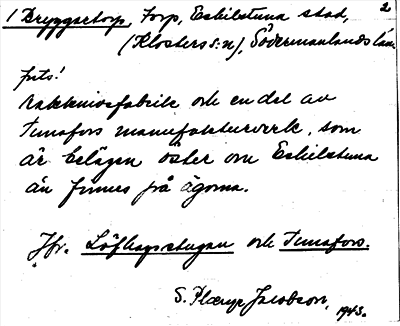 1 Bryggartorp, torp, Eskilstuna stad, 2
(Klosters s:n), Södermanlands län.
forts!
rakknivsfabrik och en del av
Tunafors manufakturverk, som
är belägen öster om Eskilstuna
ån finnes på ägorna.
Jfr. Löfhagsstugan och Tunafors.
S. Jacobson, 1943.